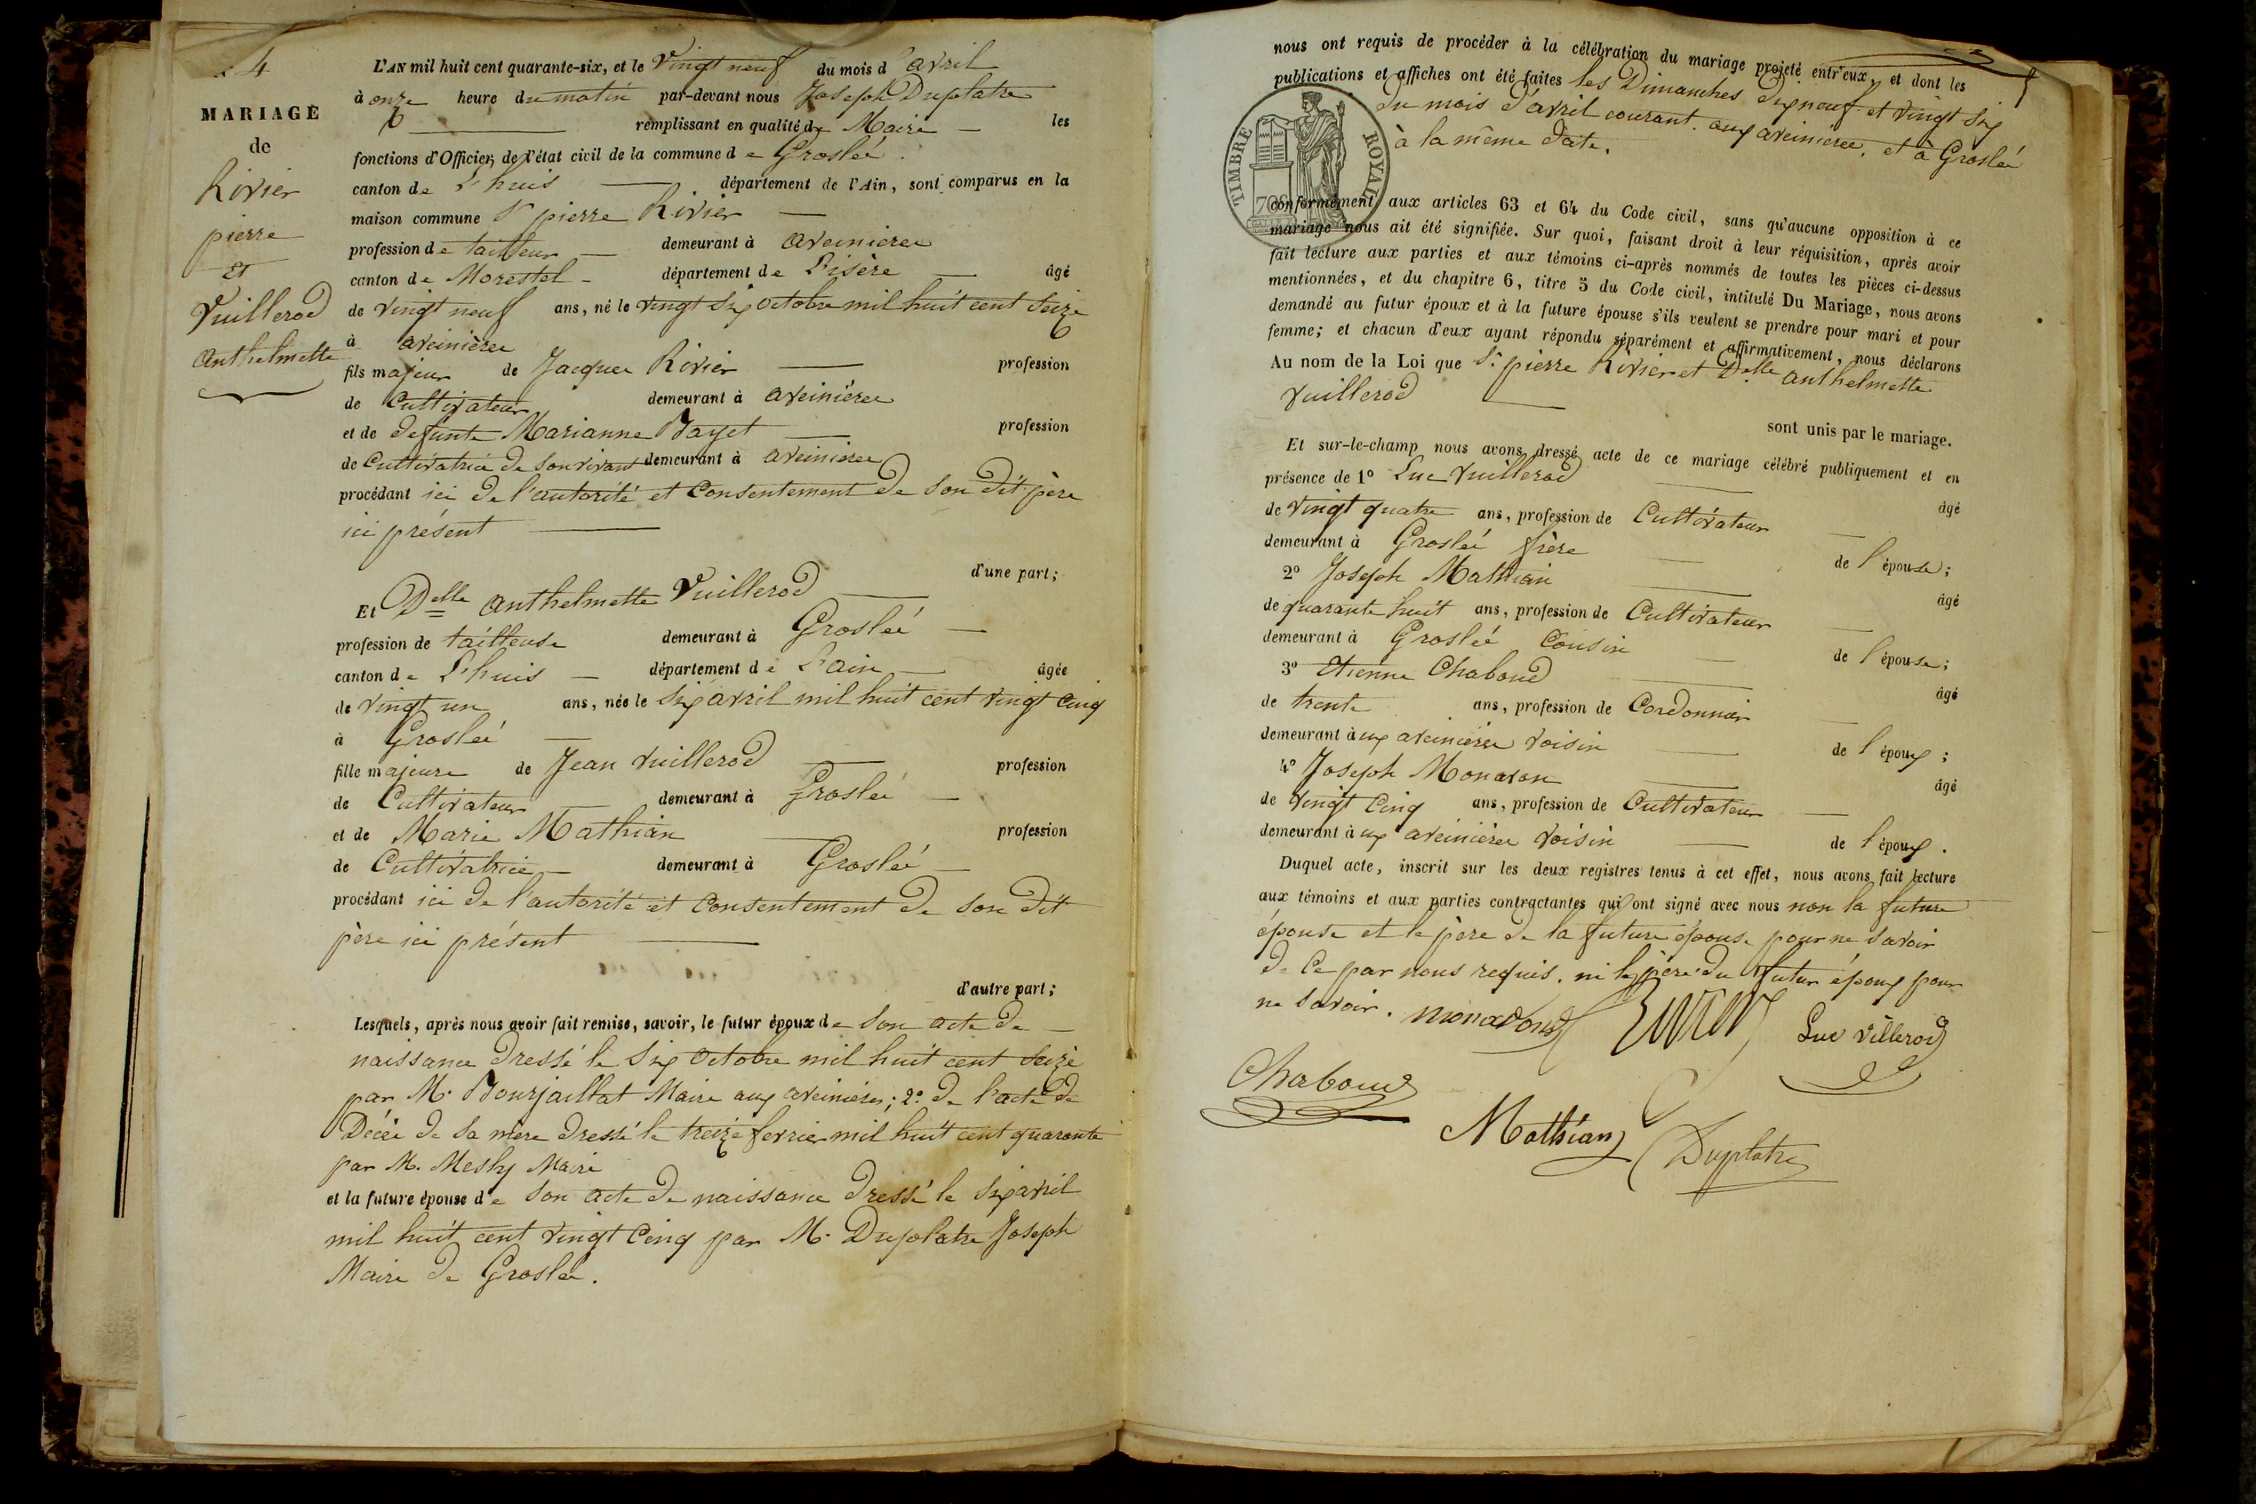 4
MARIAGE
de
Rivier
pierre
et
Vuillerod
Anthelmette
L'AN mil huit cent quarante-six, et le vingt neuf du mois d'avril
à onze heure du matin par-devant nous Joseph Duplatre
remplissant en qualité de Maire les
fonctions d'Officier de l'état civil de la commune de Groslée
canton de L'huis département de l'Ain, sont comparus en la
maison commune Sr pierre Rivier
profession de tailleur demeurant à aveinieres
canton de Morestel département de L'isère âgé
de vingt neuf ans, né le vingt six octobre mil huit cent seize
à aveinières
fils majeur de Jacques Rivier profession
de Cultivateur demeurant à aveinières
et de défunte Marianne Bayet profession
de Cultivatrice de son vivant demeurant à aveinieres
procédant ici de l'autorité et consentement de son dit père
ici présent
d'une part;
Et Delle anthelmette Vuillerod
profession de tailleuse demeurant à Groslée
canton de L'huis département de L'ain âgée
de vingt un ans, née le six avril mil huit cent vingt cinq
à Groslée
fille majeure de Jean Vuillerod profession
de Cultivateur demeurant à Groslée
et de Marie Mathian profession
de Cultivatrice demeurant à Groslée
procédant ici de l'autorité et consentement de son dit
père ici présent
d'autre part;
Lesquels, après nous avoir fait remise, savoir, le futur époux de son acte de
naissance dressé le six octobre mil huit cent seize
par M. Bourjaillat Maire aux aveinieres; 2º de l'acte de
Décès de sa mère dressé le treize fevrier mil huit cent quarante
par M. Maire
et la future épouse de son acte de naissance dressé le six avril
mil huit cent vingt cinq par M. Duplatre Joseph
Maire de Groslée.
nous ont requis de procéder à la célébration du mariage projeté entr'eux, et dont les
publications et affiches ont été faites les Dimanches dix neuf et vingt six
du mois d'avril courant aux aveinieres, et à Groslée
à la même date.
TIMBRE ROYAL
conformément aux articles 63 et 64 du Code civil, sans qu'aucune opposition à ce
mariage nous ait été signifiée. Sur quoi, faisant droit à leur réquisition, après avoir
fait lecture aux parties et aux témoins ci-après nommés de toutes les pièces ci-dessus
mentionnées, et du chapitre 6, titre 5 du Code civil, intitulé Du Mariage, nous avons
demandé au futur époux et à la future épouse s'ils veulent se prendre pour mari et pour
femme; et chacun d'eux ayant répondu séparément et affirmativement, nous déclarons
Au nom de la Loi que Sr pierre Rivier et Delle anthelmette
Vuillerod
sont unis par le mariage.
Et sur-le-champ nous avons dressé acte de ce mariage célébré publiquement et en
présence de 1º Luc Vuillerod
âgé
de vingt quatre ans, profession de Cultivateur
demeurant à Groslée frère de l'épouse;
2º Joseph Mathian
âgé
de quarante huit ans, profession de Cultivateur
demeurant à Groslée Cousin de l'épouse;
3º Etienne Chaboud
âgé
de trente ans, profession de Cordonnier
demeurant aux aveinieres voisin de l'époux;
4º Joseph Monavon
âgé
de vingt cinq ans, profession de Cultivateur
demeurant aux aveinières voisin de l'époux.
Duquel acte, inscrit sur les deux registres tenus à cet effet, nous avons fait lecture
aux témoins et aux parties contractantes qui ont signé avec nous non la future
épouse et le père de la future épouse pour ne savoir
de ce par nous requis. ni le père du futur époux pour
ne savoir. monavon Rivier Luc villerod
Chaboud
Mathian Duplatre